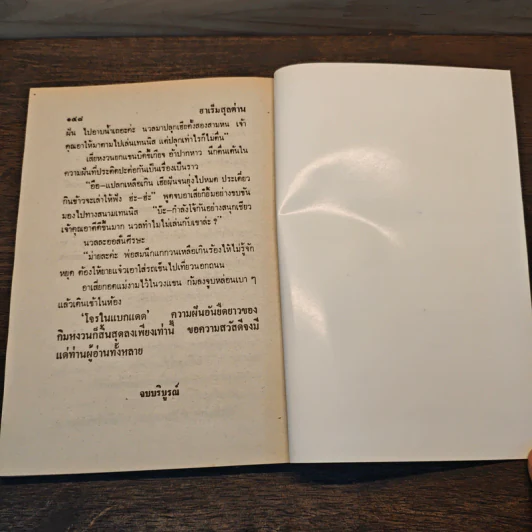 ๑๔๘ ฮาเร็มสุลต่าน
ฝัน ไปอาบน้ำเถอะค่ะ นวลมาปลุกเฮียตั้งสองสามหน เจ้า
คุณอาให้มาตามไปเล่นเทนนิส แต่ปลุกเท่าไรก็ไม่ตื่น”
เสี่ยหงวนอกแขนบิดขี้เกียจ อ้าปากหาว นึกตื่นเต้นใน
ความฝันที่ประติดปะต่อกันเป็นเรื่องเป็นราว
“ฮือ–แปลกเหลือเกิน เฮียฝันจนยุ่งไปหมด ประเดี๋ยว
กินข้าวจะเล่าให้ฟัง ฮ่ะ–ฮ่ะ” พูดจบอาเสี่ยก็ยิ้มอย่างขบขัน
มองไปทางสนามเทนนิส “บ๊ะ–กำลังโจ้กันอย่างสนุกเชียว
เจ้าคุณอาคึดีขึ้นมาก นวลทำไมไม่เล่นกับเขาล่ะ ?”
นวลละออสั่นศีรษะ
“ม่ายละค่ะ พ่อสมนึกแกกวนเหลือเกินร้องไห้ไม่รู้จัก
หยุด ต้องให้ยายแจ๋วเอาใส่รถเข็นไปเที่ยวนอกถนน
อาเสี่ยกอดแม่งามไว้ในวงแขน ก้มลงจูบหล่อนเบา ๆ
แล้วเดินเข้าในห้อง
‘โจรในแบกแดด’ ความฝันอันยืดยาวของ
กิมหงวนก็สิ้นสุดลงเพียงเท่านี้ ขอความสวัสดีจงมี
แด่ท่านผู้อ่านทั้งหลาย
จบบริบูรณ์